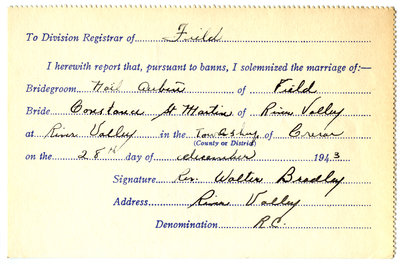 To Division Registrar of Field
I herewith report that, pursuant to banns, I solemnized the marriage of:—
Bridegroom Noël Aubin of Field
Bride Constance St Martin of River Valley
at River Valley in the Township of Crerar
(County or District)
on the 28th day of december 1943
Signature Rev. Walter Bradley
Address River Valley
Denomination R.C.